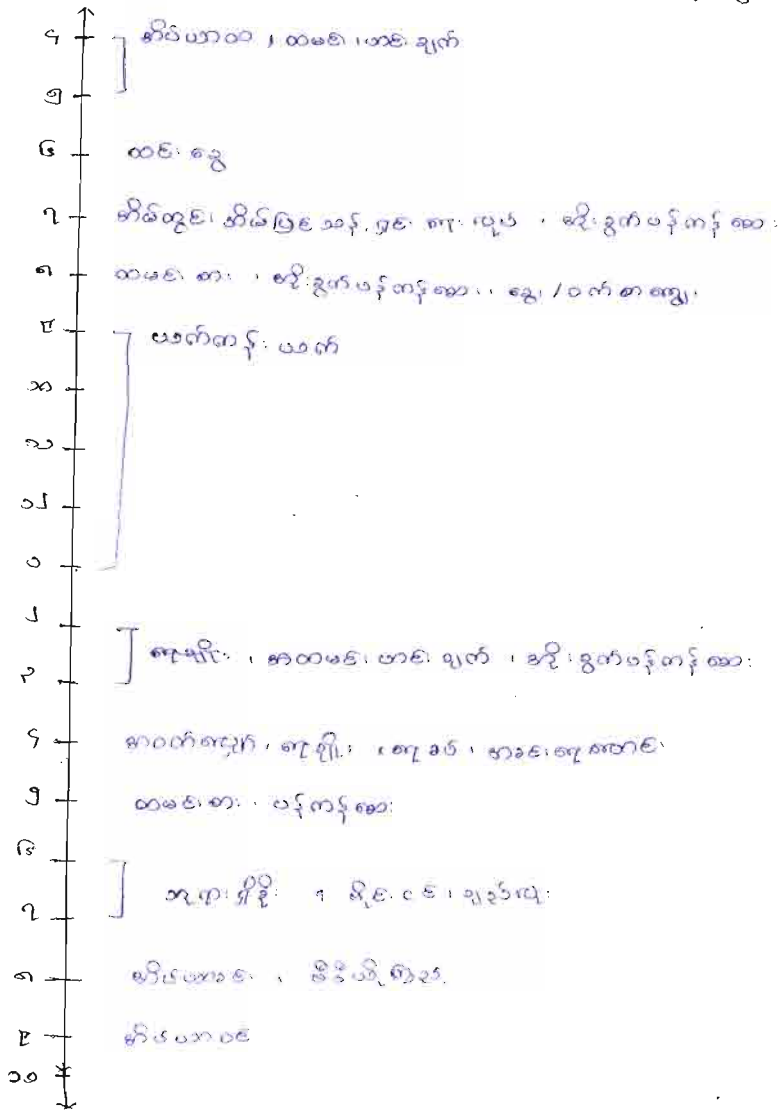 ၄ အိပ်ယာထ ၊ ထမင်း ၊ ဟင်း ချက်
၅
၆ ထင်း ခွေ
၇ အိမ်တွင်း၊ အိမ်ပြင် သန့်ရှင်း ရေး လုပ် ၊ အိုးခွက်ပန်းကန် ဆေး
၈ ထမင်း စား ၊ အိုးခွက်ပန်းကန်ဆေး ၊ ခွေး / ဝက် စာ ကျွေး
၉ ယက်ကန်း ယက်
၁၀
၁၁
၁၂
၁
၂
၃ ရေချိုး ၊ ထမင်း ဟင်း ချက် ၊ အိုးခွက်ပန်းကန် ဆေး
၄ အဝတ်လျှော် ၊ ရေချိုး ၊ ရေ ခပ်
၅ ထမင်း စား ၊ ပန်းကန်ဆေး
၆
၇ ဘုရားရှိခိုး
၈ အိပ်ယာခင်း ၊ ဗီဒီယို ကြည့်
၉ အိပ်ယာဝင်
၁၀